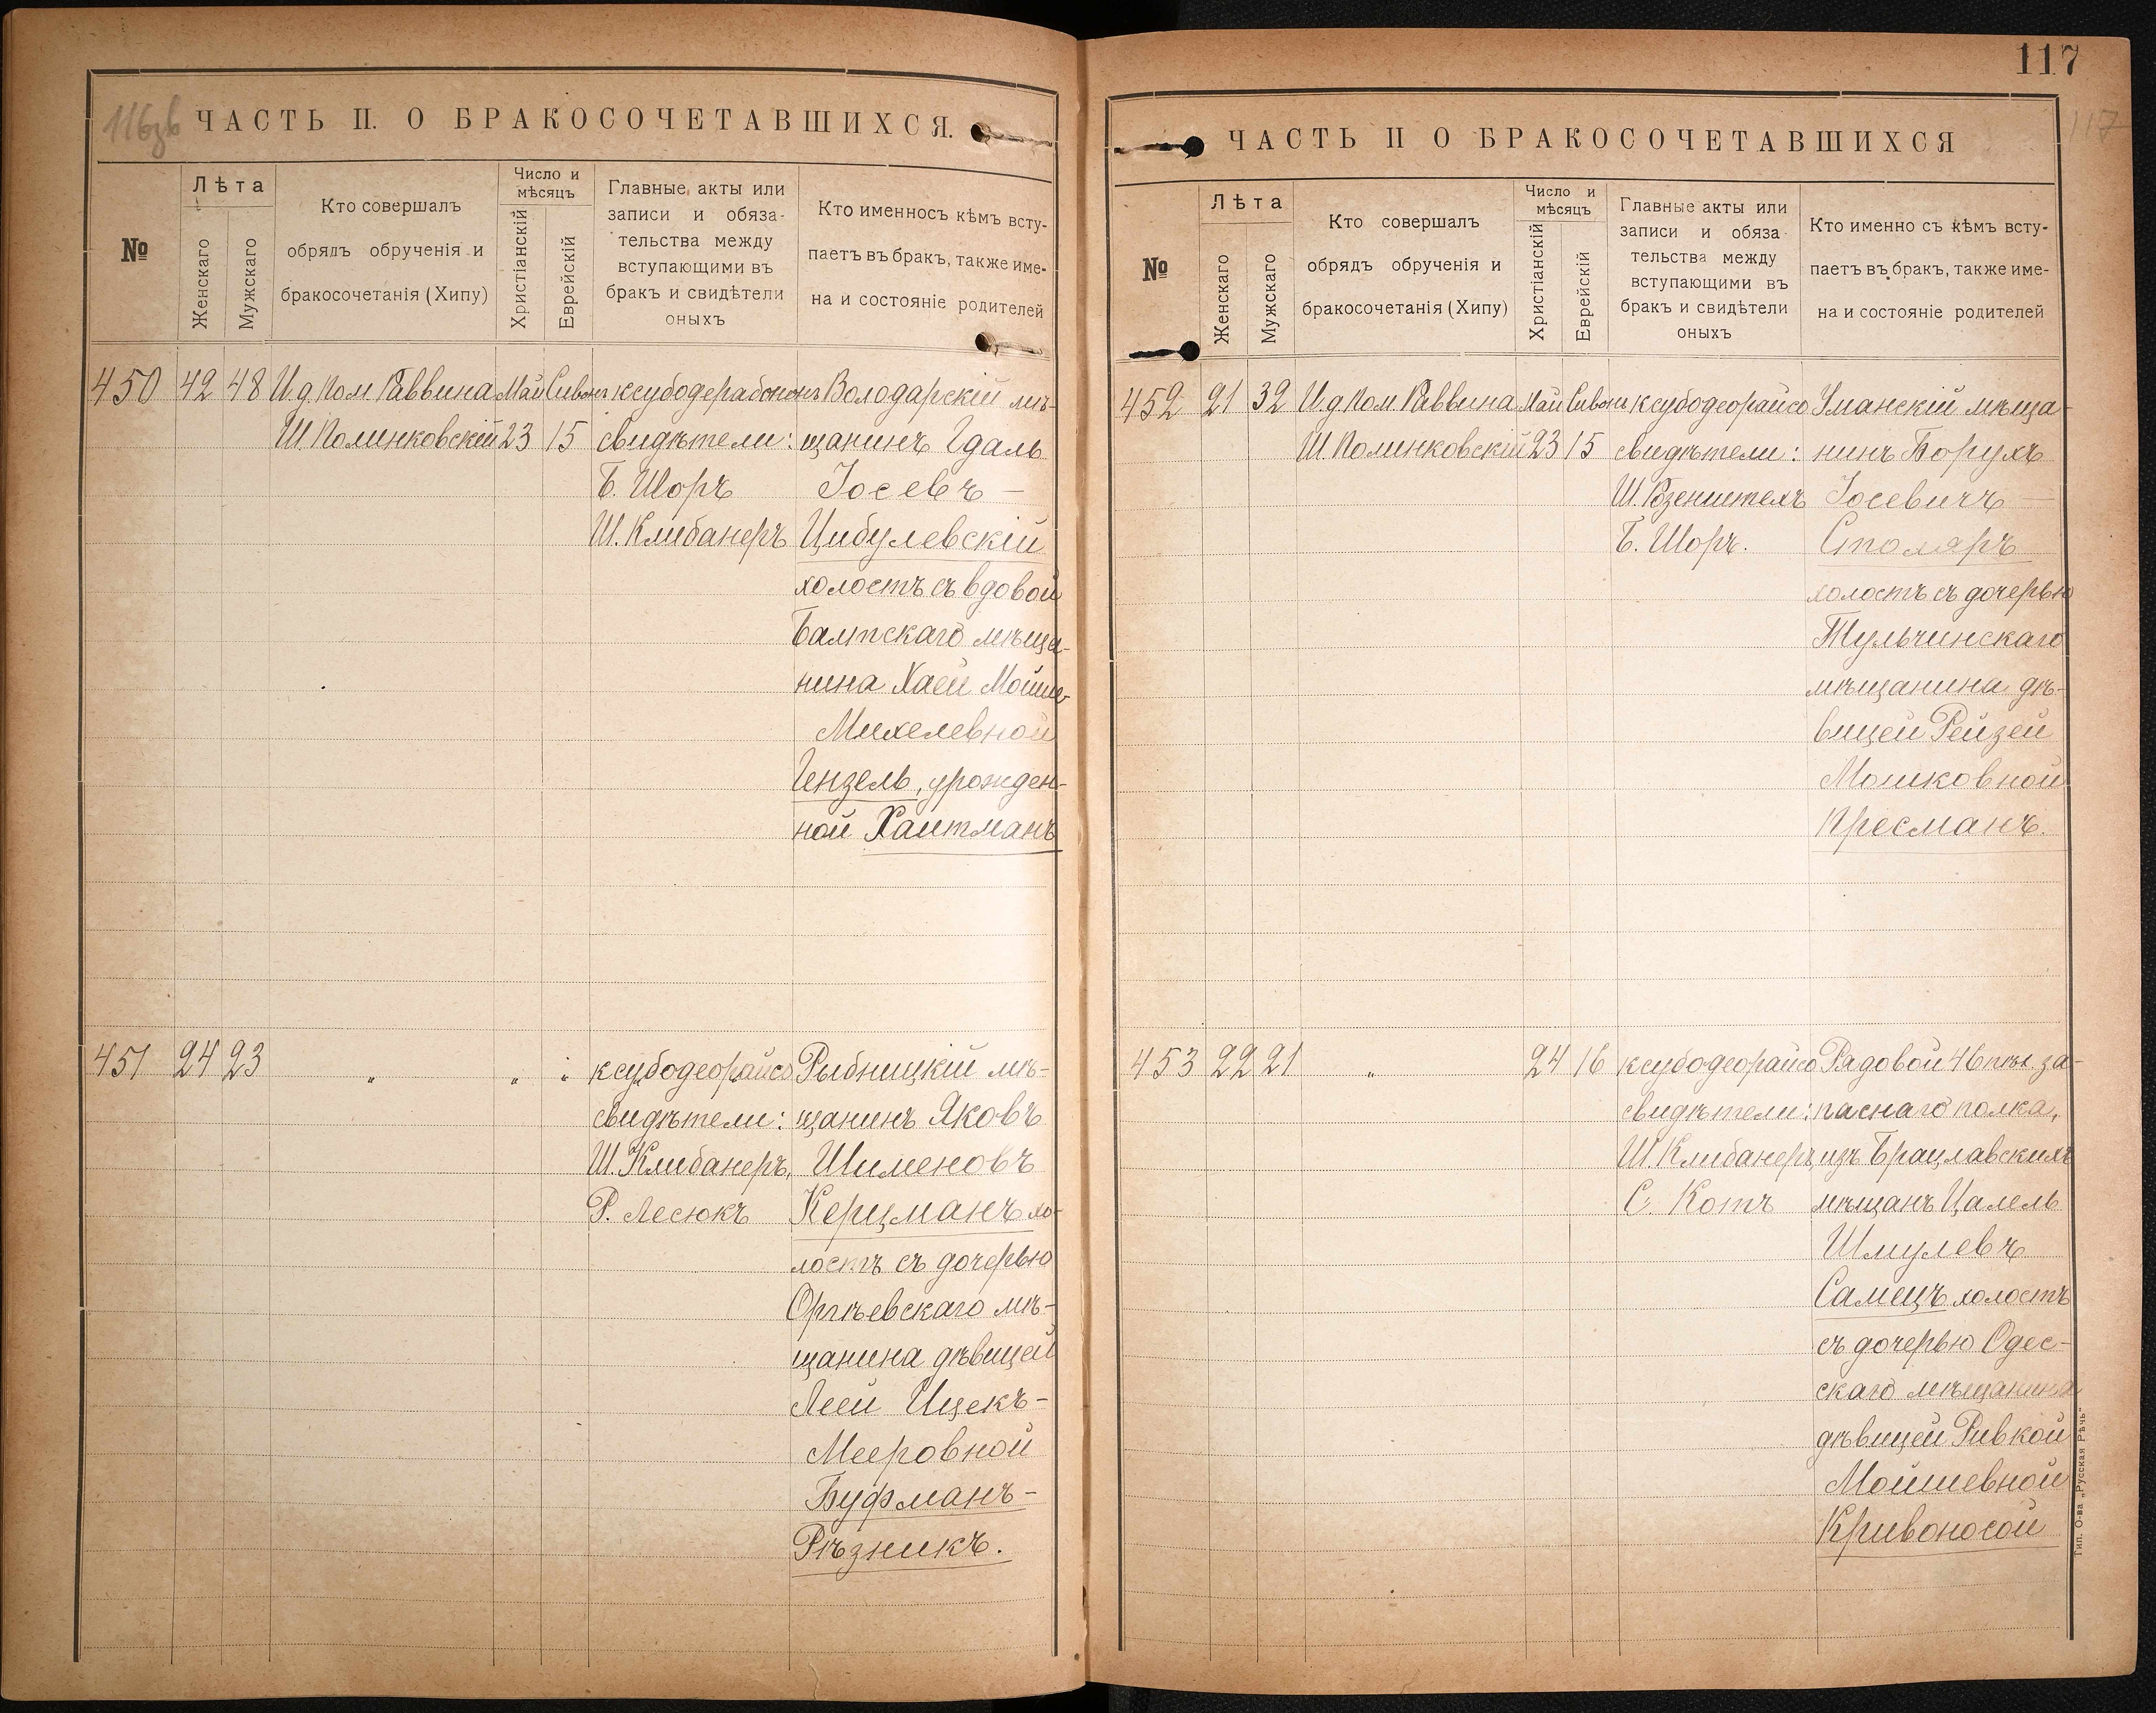 116зв
ЧАСТЬ II. О БРАКОСОЧЕТАВШИХСЯ.
№
Лѣта
Женскаго
Мужскаго
Кто совершалъ
обрядъ обрученія и
бракосочетанія (Хипу)
Число и
мѣсяцъ
Христіанскій
Еврейскій
Главные акты или
записи и обяза-
тельства между
вступающими въ
бракъ и свидѣтели
оныхъ
Кто именносъ кѣмъ всту-
паетъ въ бракъ, также име-
на и состояніе родителей
450
42
48
И.д. Пом. Раввина
Ш. Полинковскій
Май
23
Сивонъ
15
свидѣтели:
Б. Шоръ
Ш. Клибанеръ
Володарскій мѣ-
щанинъ Гдаль
Іосевъ —
Цибулевскій
холостъ съ вдовой
Балтскаго мѣща-
нина Хаей Мойше-
Михелевной
Гензель, урожден-
ной Хаитманъ
451
24
23
„
„
„
ксубодеорайсо
свидѣтели:
Ш. Клибанеръ,
Р. Лесюкъ
Рыбницкій мѣ-
щанинъ Яковъ
Шименовъ
Керцманъ хо-
лостъ съ дочерью
Оргѣевскаго мѣ-
щанина дѣвицей
Леей Ицекъ-
Мееровной
Буфманъ-
Рѣзникъ.
117
117
ЧАСТЬ II О БРАКОСОЧЕТАВШИХСЯ
№
Лѣта
Женскаго
Мужскаго
Кто совершалъ
обрядъ обрученія и
бракосочетанія (Хипу)
Число и
мѣсяцъ
Христіанскій
Еврейскій
Главные акты или
записи и обяза-
тельства между
вступающими въ
бракъ и свидѣтели
оныхъ
Кто именно съ кѣмъ всту-
паетъ въ бракъ, также име-
на и состояніе родителей
452
21
32
И.д. Пом. Раввина
Ш. Полинковскій
Май
23
Сивонъ
15
ксубодеорайсо
свидѣтели:
Ш. Розенштехъ
Б. Шоръ.
Уманскій мѣща-
нинъ Борухъ
Іосевичъ —
Столяръ
холостъ съ дочерью
Тульчинскаго
мѣщанина дѣ-
вицей Рейзей
Мошковной
Пресманъ.
453
22
21
„
24
16
ксубодеорайсо
свидѣтели:
Ш. Клибанеръ,
С. Котъ
Рядовой 46 пѣх. за-
паснаго полка,
изъ Брацлавскихъ
мѣщанъ Цалель
Шмулевъ
Самецъ холостъ
съ дочерью Одес-
скаго мѣщанина
дѣвицей Ривкой
Мойшевной
Кривоносой
Тип. О-ва „Русская Рѣчь“